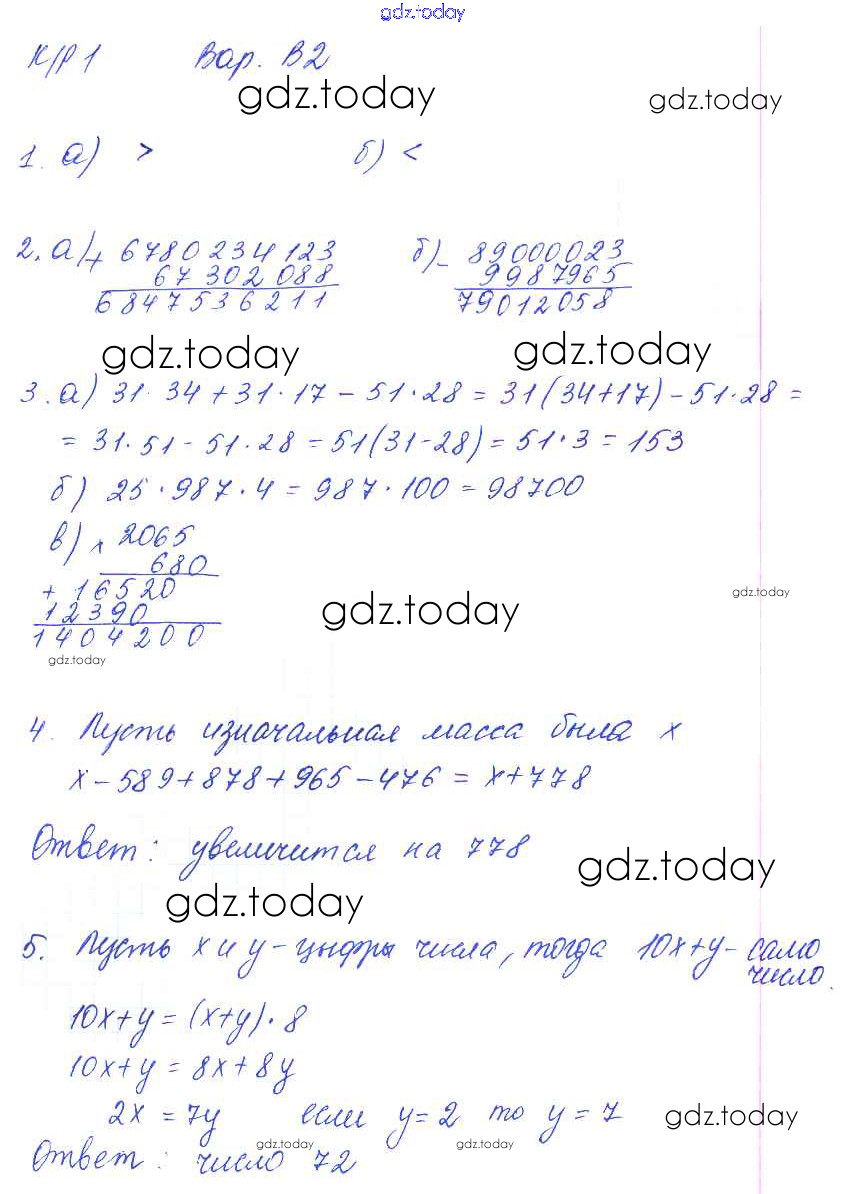 gdz.today
К/Р 1 Вар. В2
gdz.today gdz.today
1. а) > б) <
2. а) + 6780234123 б) - 89000023
67302088 9987965
6847536211 79012058
gdz.today gdz.today
3. а) 31·34+31·17-51·28=31(34+17)-51·28=
=31·51-51·28=51(31-28)=51·3=153
б) 25·987·4=987·100=98700
в) x 2065
680
+ 16520 gdz.today
12390 gdz.today
1404200
gdz.today
4. Пусть изначальная масса была x
x-589+878+965-476=x+778
Ответ: увеличится на 778
gdz.today
gdz.today
5. Пусть x и y-цыфры числа, тогда 10x+y- само
число.
10x+y=(x+y)·8
10x+y=8x+8y
2x=7y если y=2 то y=7 gdz.today
gdz.today gdz.today
Ответ: число 72